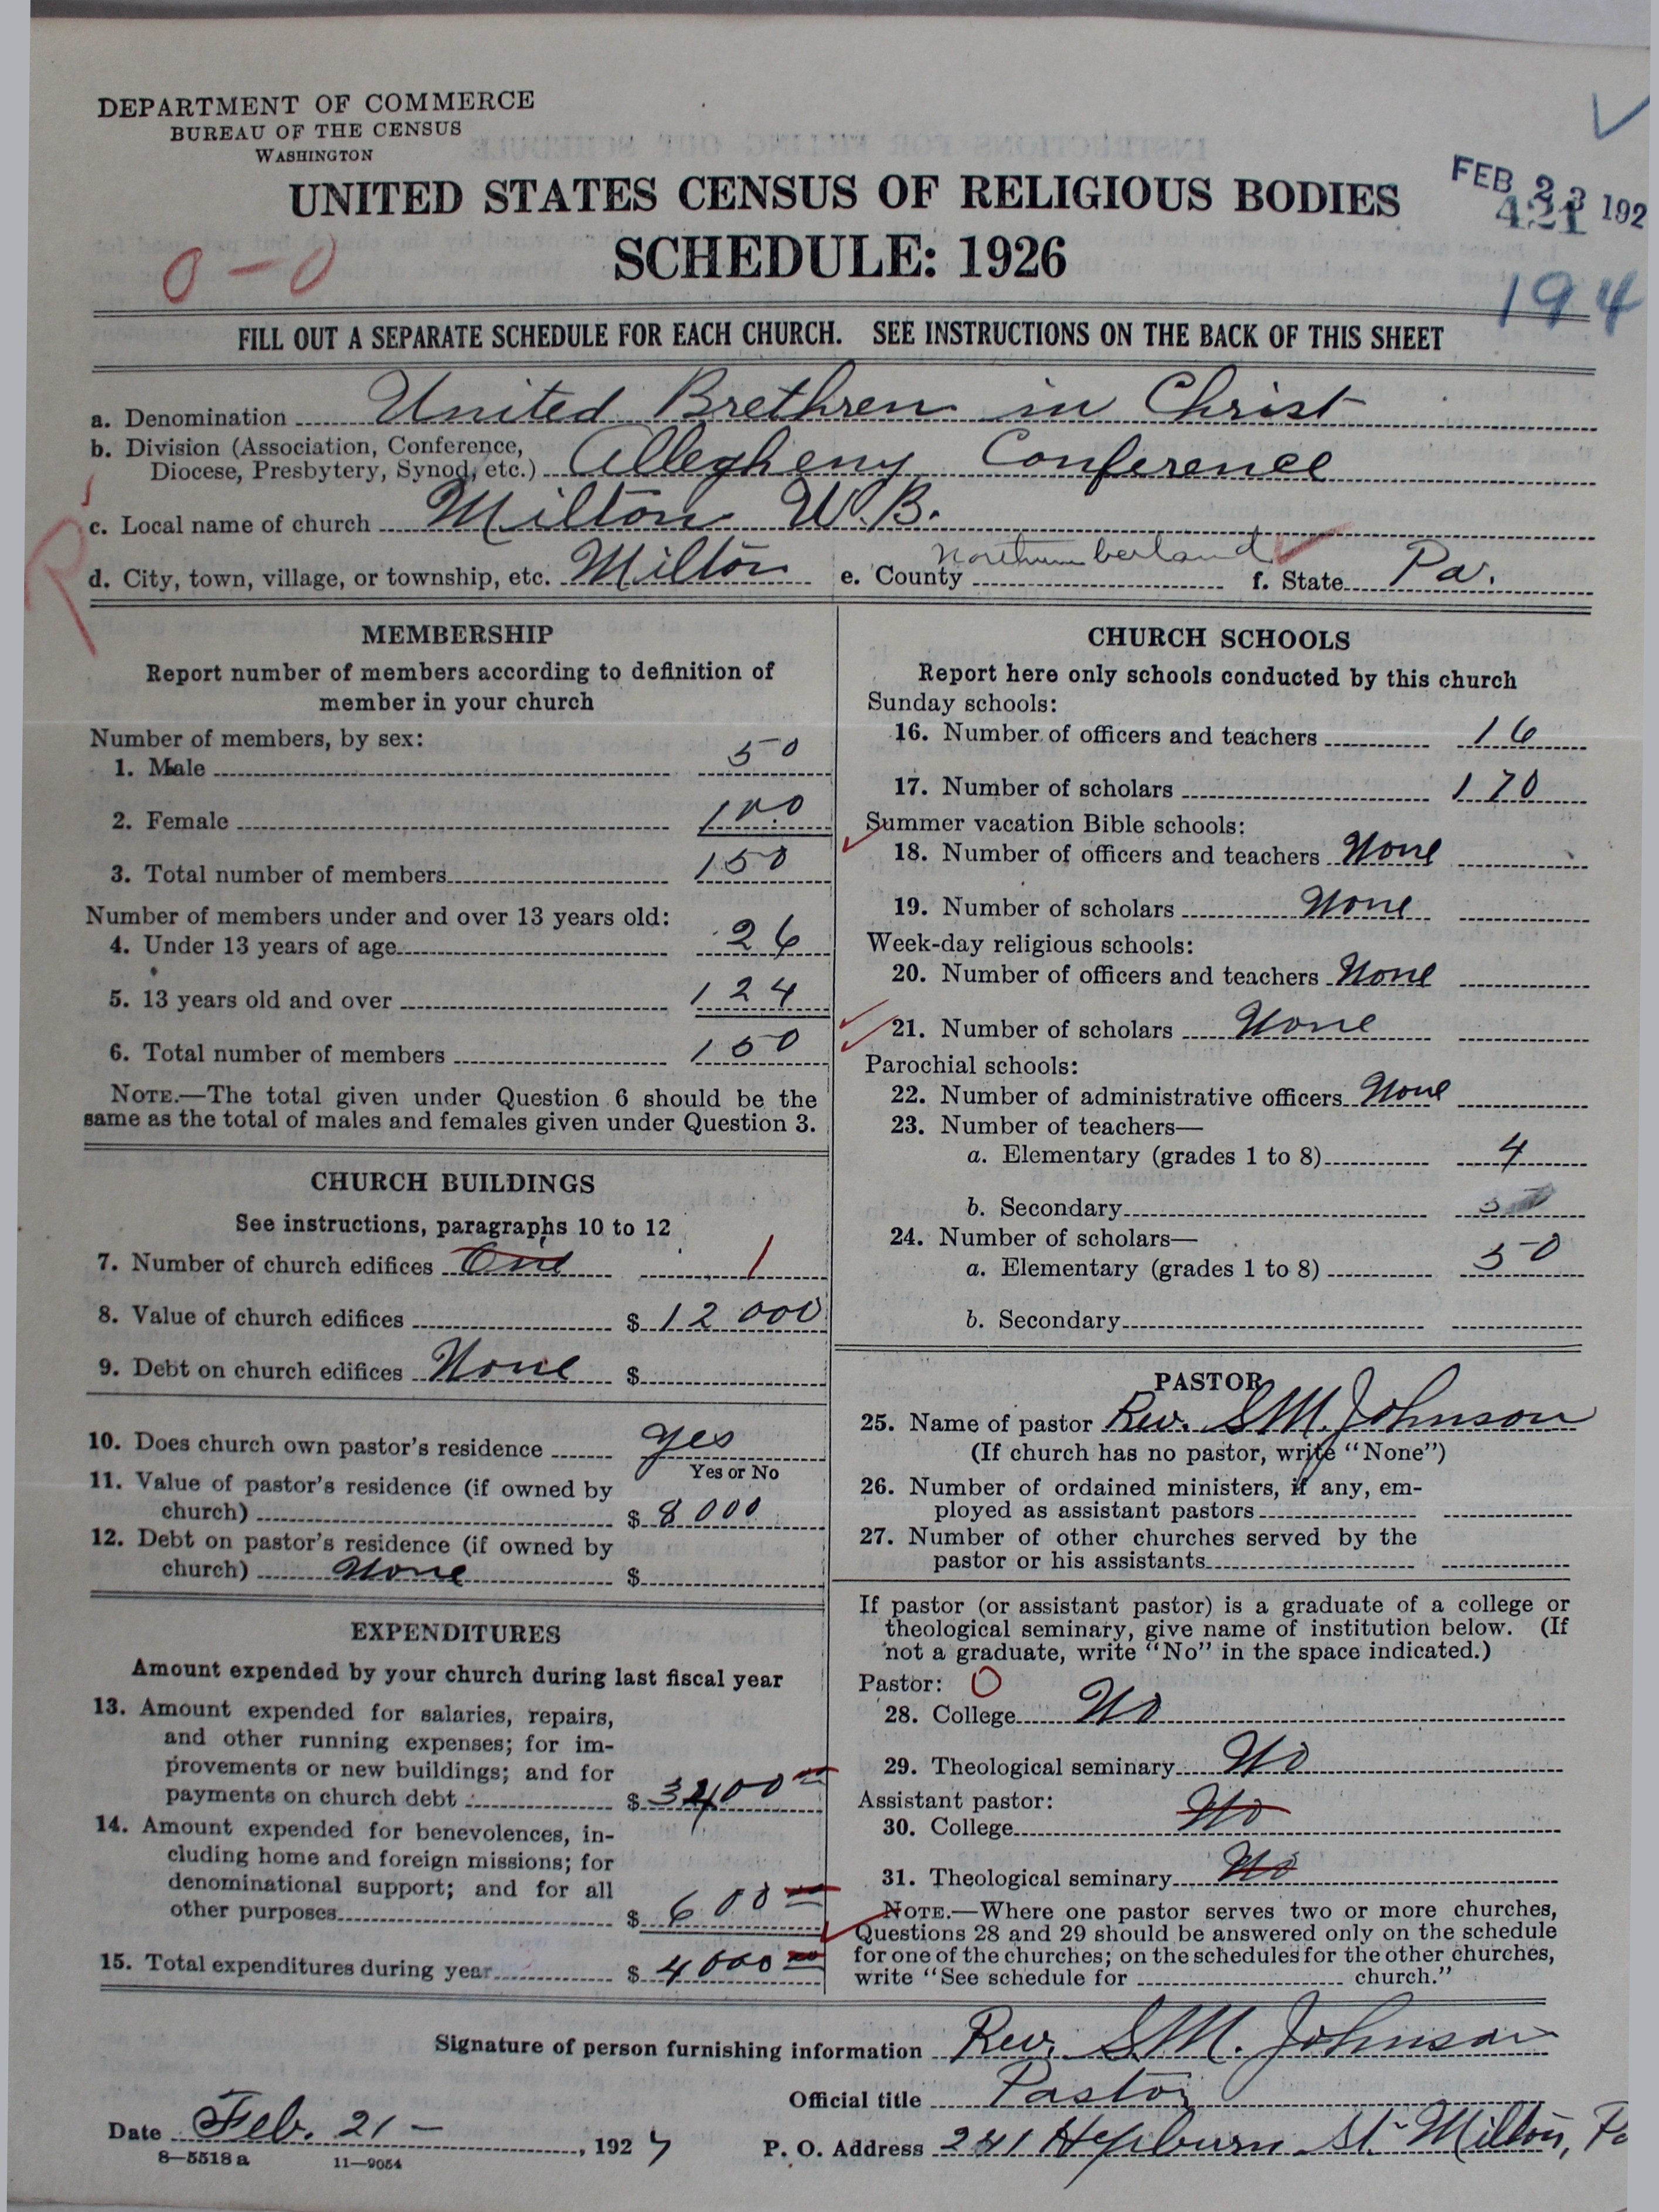 DEPARTMENT OF COMMERCE
BUREAU OF THE CENSUS
WASHINGTON
UNITED STATES CENSUS OF RELIGIOUS BODIES
SCHEDULE: 1926
FEB 23 192
421
194
0-0
FILL OUT A SEPARATE SCHEDULE FOR EACH CHURCH. SEE INSTRUCTIONS ON THE BACK OF THIS SHEET
a. Denomination United Brethren in Christ
b. Division (Association, Conference,
Diocese, Presbytery, Synod, etc.) Allegheny Conference
c. Local name of church Milton U.B.
R
d. City, town, village, or township, etc. Milton e. County Northumberland f. State Pa.
MEMBERSHIP
Report number of members according to definition of
member in your church
Number of members, by sex:
1. Male 50
2. Female 100
3. Total number of members 150
Number of members under and over 13 years old:
4. Under 13 years of age 26
5. 13 years old and over 124
6. Total number of members 150
NOTE.—The total given under Question 6 should be the
same as the total of males and females given under Question 3.
CHURCH BUILDINGS
See instructions, paragraphs 10 to 12
7. Number of church edifices One 1
8. Value of church edifices $ 12 000
9. Debt on church edifices None $
10. Does church own pastor's residence yes
Yes or No
11. Value of pastor's residence (if owned by
church) $ 8000
12. Debt on pastor's residence (if owned by
church) None $
EXPENDITURES
Amount expended by your church during last fiscal year
13. Amount expended for salaries, repairs,
and other running expenses; for im-
provements or new buildings; and for
payments on church debt $ 3400
14. Amount expended for benevolences, in-
cluding home and foreign missions; for
denominational support; and for all
other purposes $ 600
15. Total expenditures during year $ 4000
CHURCH SCHOOLS
Report here only schools conducted by this church
Sunday schools:
16. Number of officers and teachers 16
17. Number of scholars 170
Summer vacation Bible schools:
18. Number of officers and teachers None
19. Number of scholars None
Week-day religious schools:
20. Number of officers and teachers None
21. Number of scholars None
Parochial schools:
22. Number of administrative officers None
23. Number of teachers—
a. Elementary (grades 1 to 8) 4
b. Secondary
24. Number of scholars—
a. Elementary (grades 1 to 8) 50
b. Secondary
PASTOR
25. Name of pastor Rev. S.M. Johnson
(If church has no pastor, write "None")
26. Number of ordained ministers, if any, em-
ployed as assistant pastors
27. Number of other churches served by the
pastor or his assistants
If pastor (or assistant pastor) is a graduate of a college or
theological seminary, give name of institution below. (If
not a graduate, write "No" in the space indicated.)
Pastor: 0
28. College No
29. Theological seminary No
Assistant pastor:
30. College No
31. Theological seminary No
NOTE.—Where one pastor serves two or more churches,
Questions 28 and 29 should be answered only on the schedule
for one of the churches; on the schedules for the other churches,
write "See schedule for church."
Signature of person furnishing information Rev. S.M. Johnson
Official title Pastor
Date Feb. 21 - , 1927 P. O. Address 241 Hepburn St. Milton, Pa
8—5518 a 11—9054